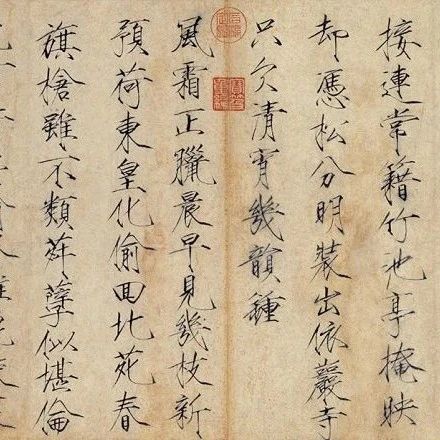 接連常籍竹池亭掩映
却憑松分明裝出依巖寺
只欠清宵幾韻鍾
風霜正臘晨早見幾枝新
預荷東皇化偷回北苑春
旗槍雖不類荈孽似堪倫